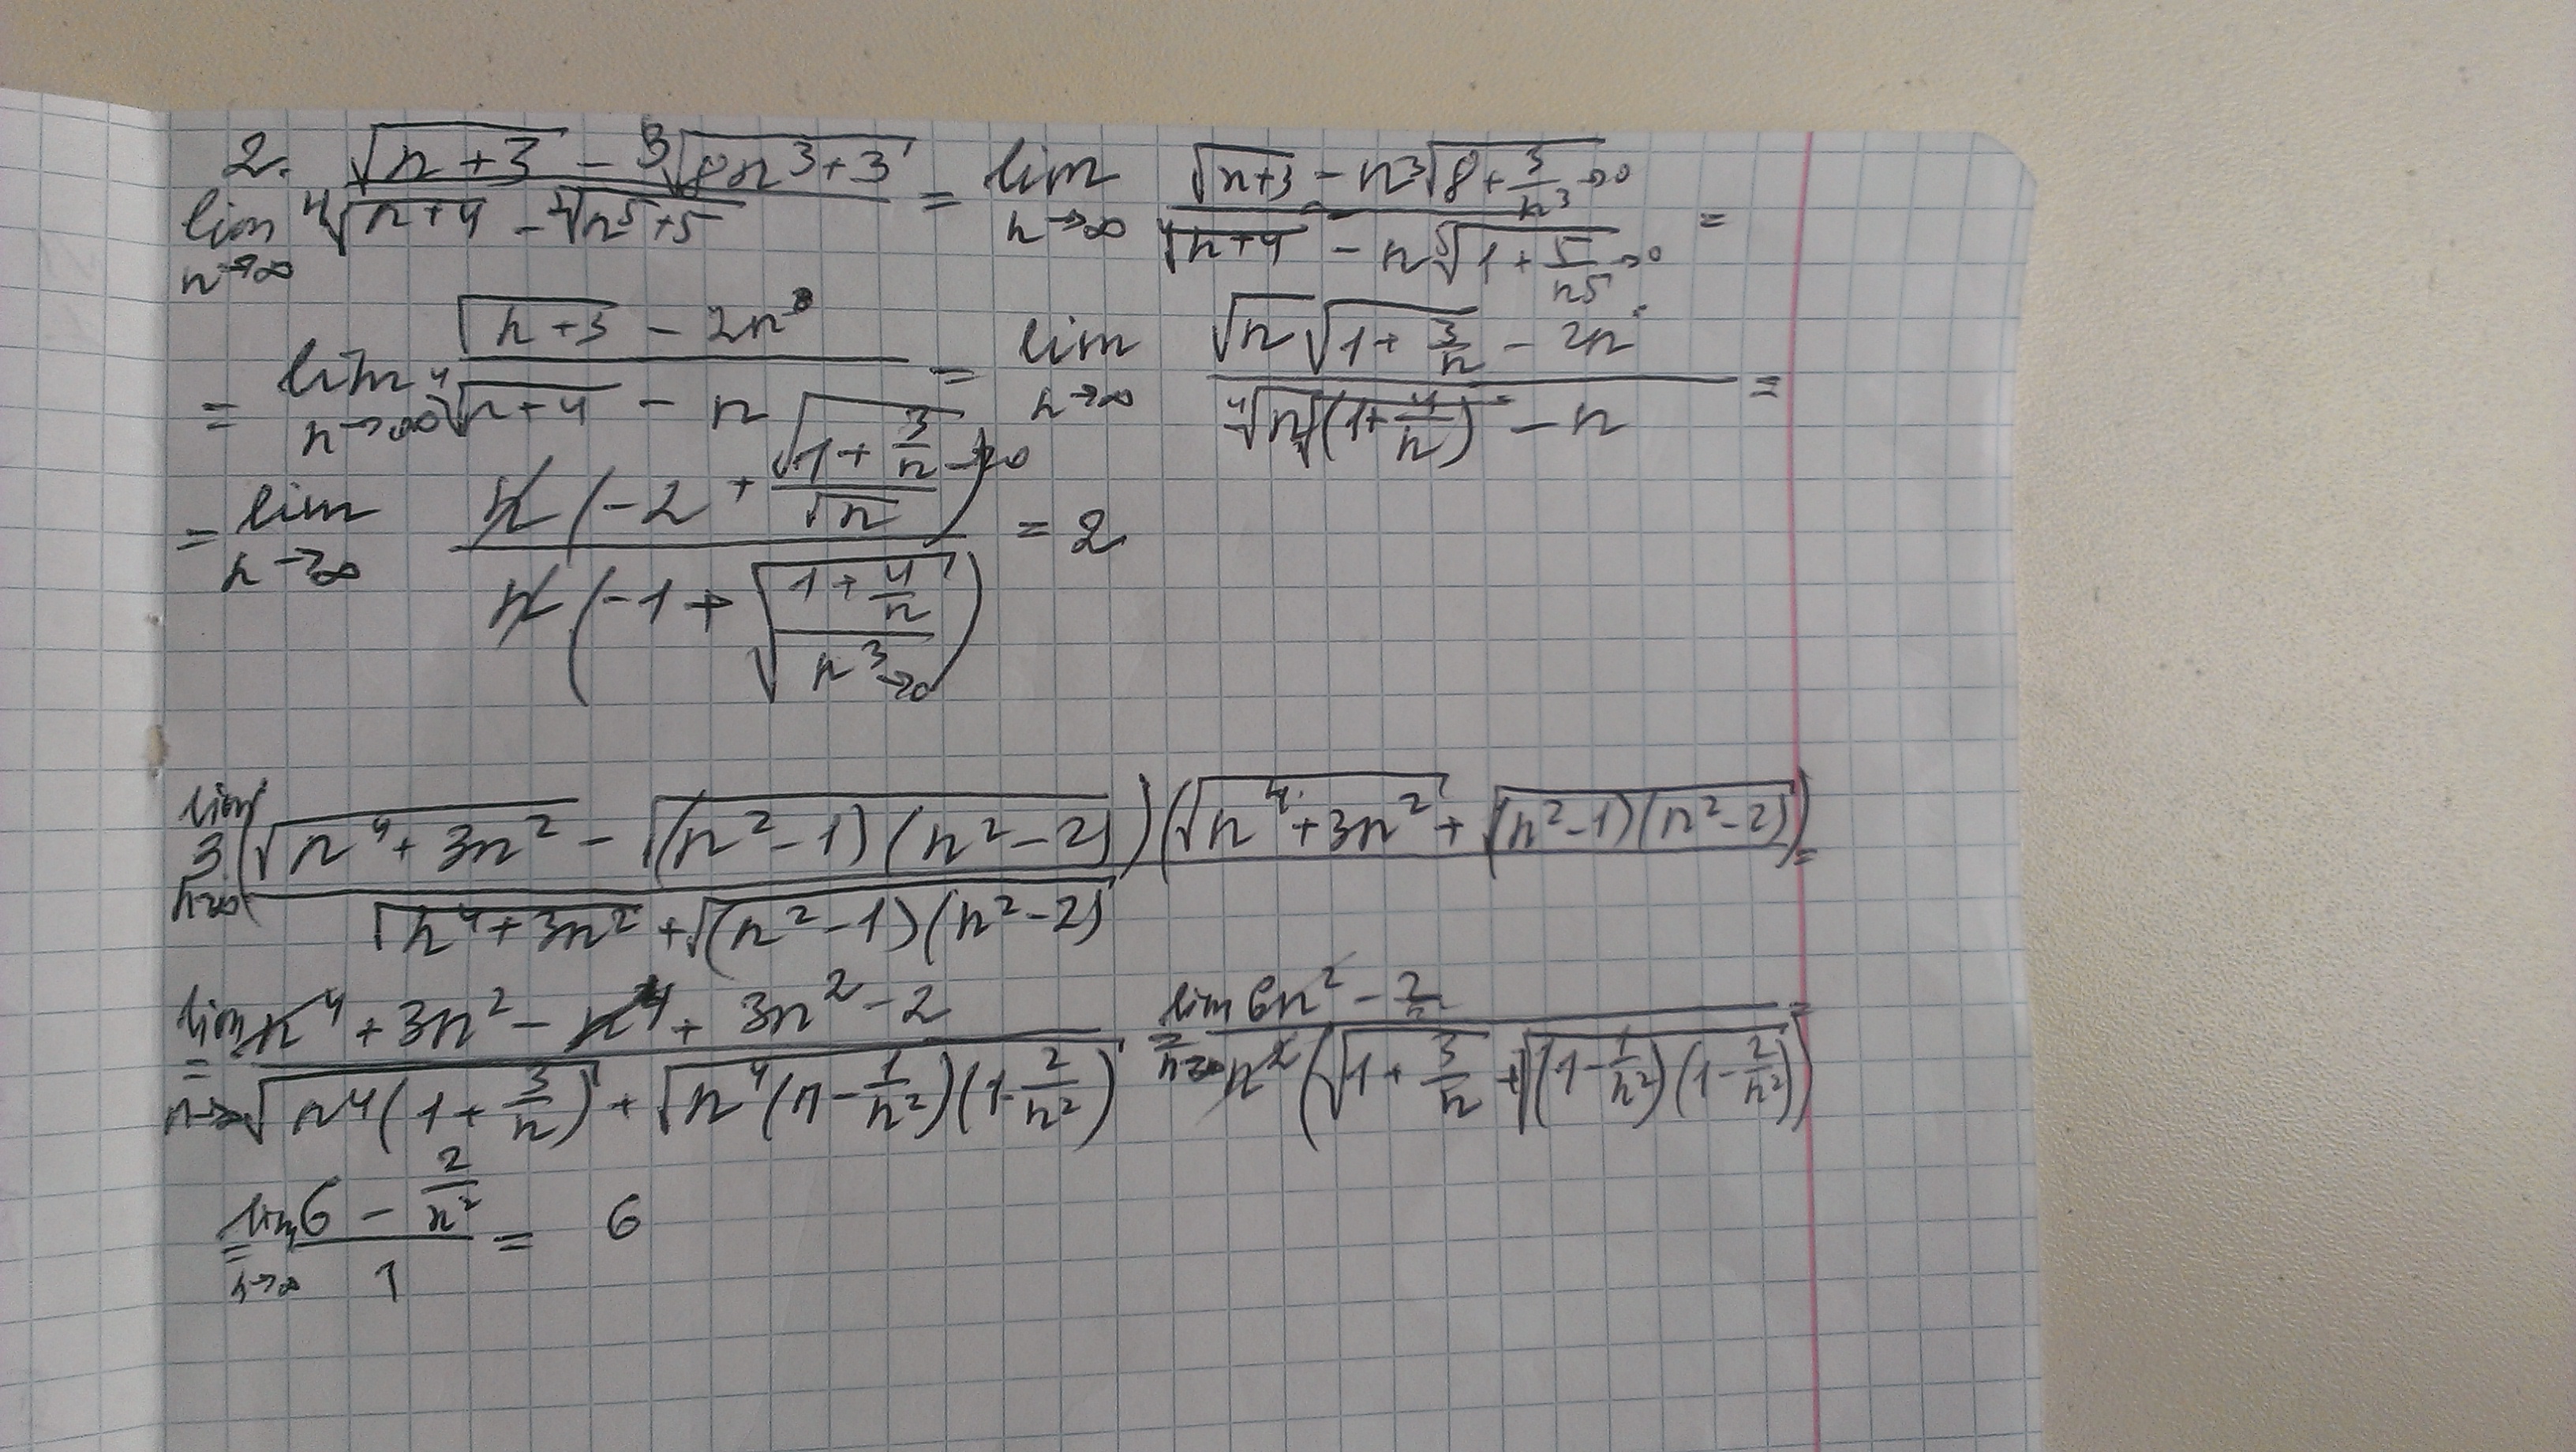 2. lim n→∞ (√(n+3) − ³√(8n³+3)) / (⁴√(n+4) − ⁵√(n⁵+5)) = lim n→∞ (√(n+3) − n³√(8+3/n³→0)) / (⁴√(n+4) − n⁵√(1+5/n⁵→0)) =
= lim n→∞ (√(n+3) − 2n) / (⁴√(n+4) − n) = lim n→∞ (√n √(1+3/n) − 2n) / (⁴√(n(1+4/n)) − n) =
= lim n→∞ n(−2 + √(1+3/n)/√n →0) / n(−1 + √((1+4/n)/n³) →0) = 2
3. lim n→∞ (√(n⁴+3n²) − √((n²−1)(n²−2)))(√(n⁴+3n²) + √((n²−1)(n²−2))) / (√(n⁴+3n²) + √((n²−1)(n²−2))) =
= lim n→∞ (n⁴+3n²−n⁴+3n²−2) / (√(n⁴(1+3/n)) + √(n⁴(1−1/n²)(1−2/n²))) = lim n→∞ (6n²−2) / (n²(√(1+3/n) + √((1−1/n²)(1−2/n²)))) =
= lim n→∞ (6 − 2/n²) / 1 = 6